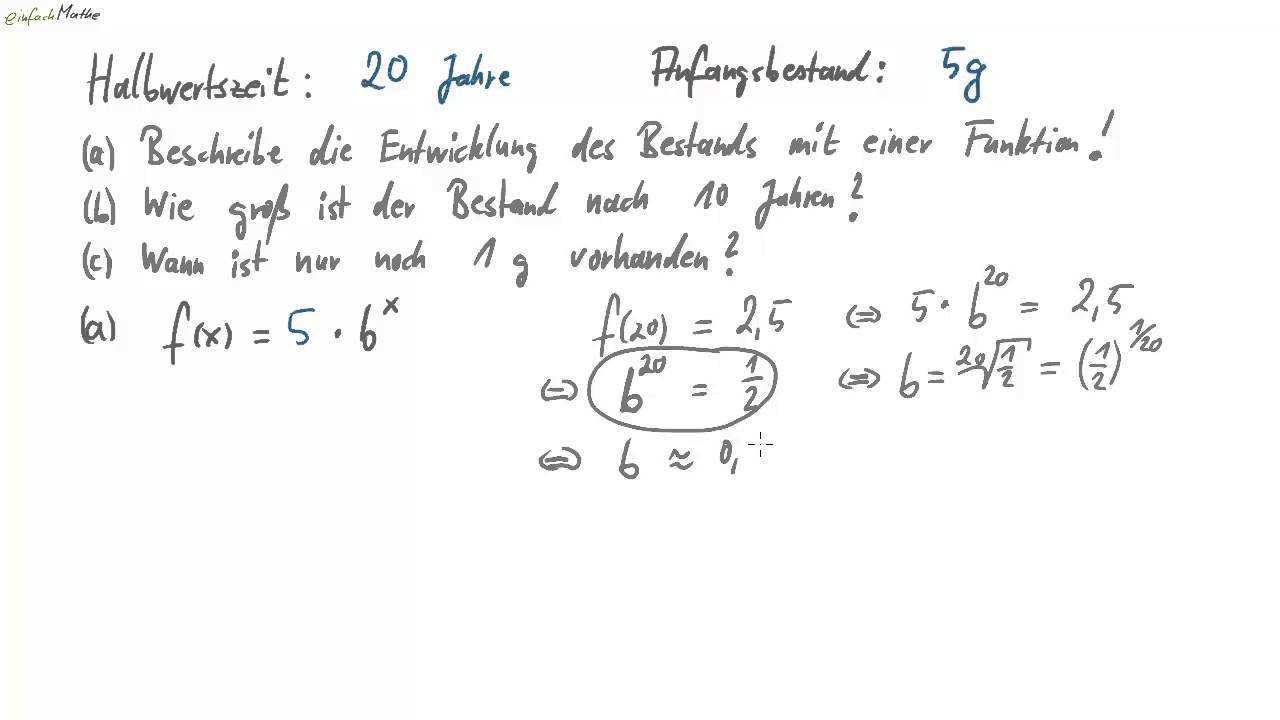 einfachMathe
Halbwertszeit: 20 Jahre Anfangsbestand: 5g
(a) Beschreibe die Entwicklung des Bestands mit einer Funktion!
(b) Wie groß ist der Bestand nach 10 Jahren?
(c) Wann ist nur noch 1 g vorhanden?
(a) f(x) = 5 · b^x f(20) = 2,5 ⇔ 5 · b^20 = 2,5
⇔ b^20 = 1/2 ⇔ b = ²⁰√(1/2) = (1/2)^1/20
⇔ b ≈ 0,